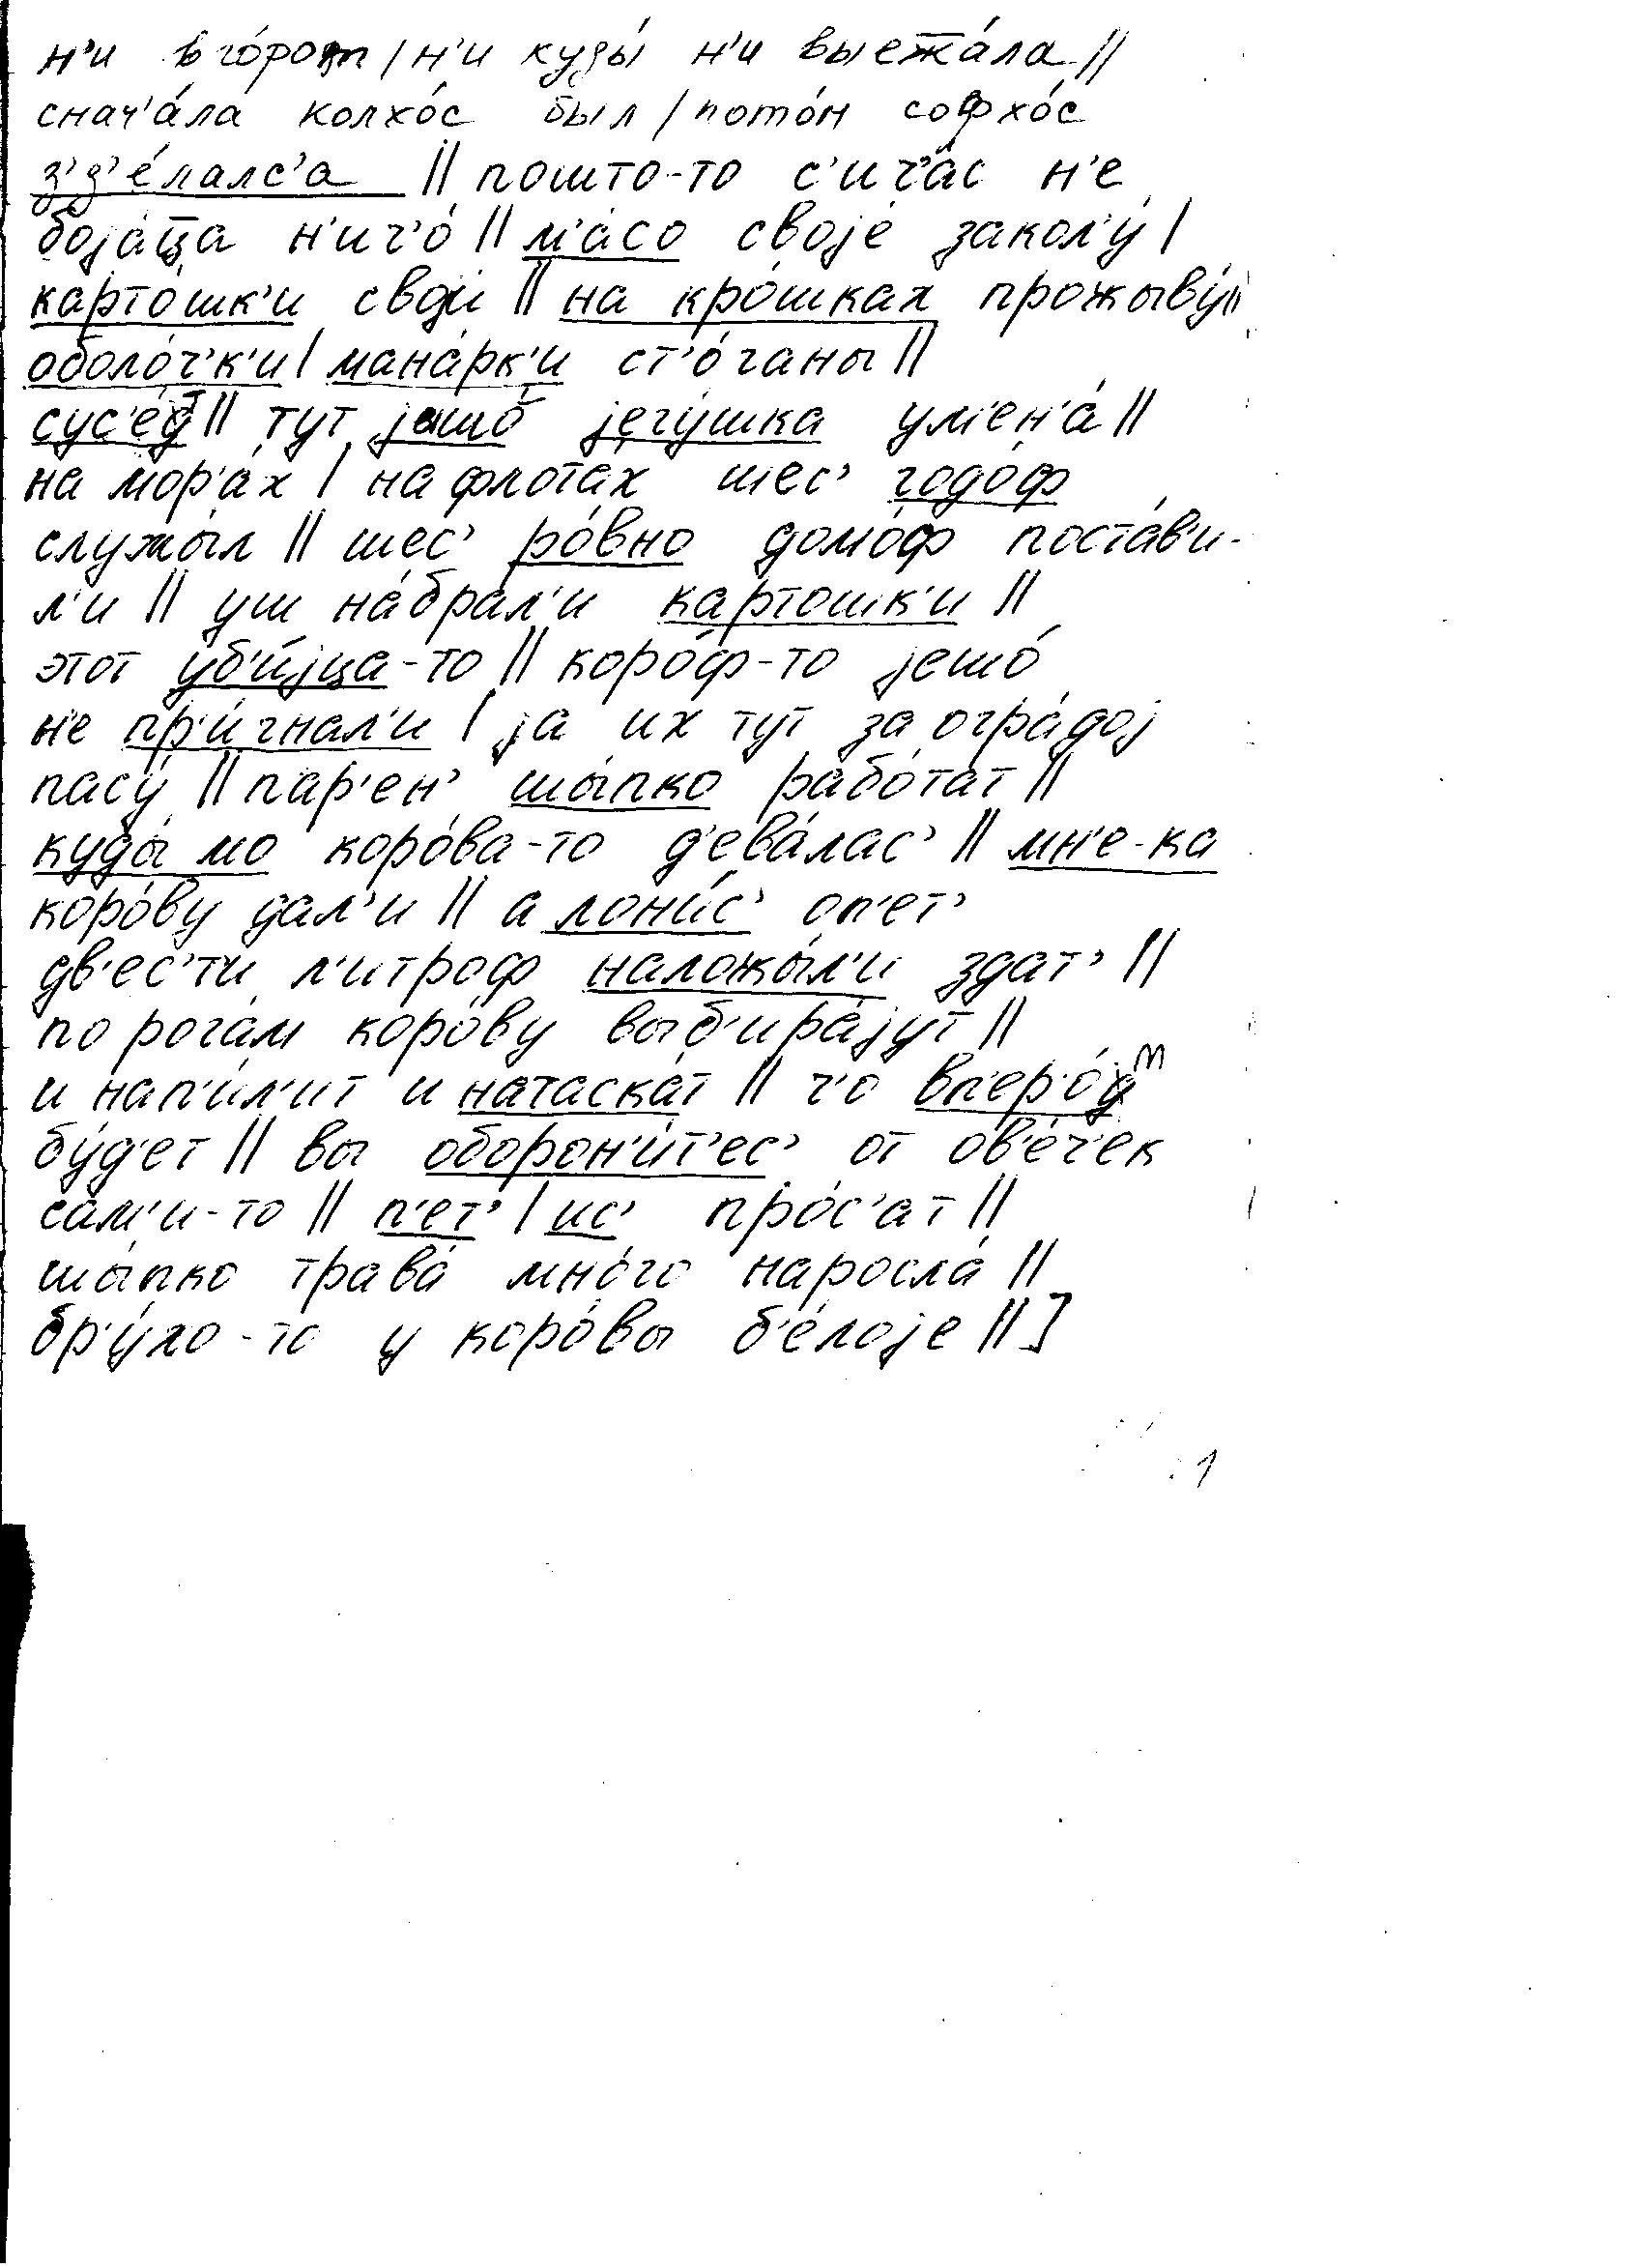 н'и в го́рот / н'и куды́ н'и выежа́ла //
снач'а́ла колхо́с был / пото́н софхо́с
з'д'е́лалс'а || пошто-то с'ич'а́с н'е
боjа́ца н'ич'о́ || м'а́со своjе́ закол'у́ |
карто́шк'и своjи́ || на кро́шках прожыву́ ||
оболо́ч'к'и | мана́рк'и ст'о́ганы ||
сус'е́т || тут jешо́ jегу́шка ум'ен'а́ ||
на мор'а́х | на флота́х шес' годо́ф
служы́л || шес' ро́вно домо́ф поста́в'и-
л'и || уш на́брал'и картошк'и ||
этот уб'и́jца-то || коро́ф-то jешо́
н'е пр'и́гнал'и | jа их тут за огра́доj
пасу́ || пар'ен' шы́пко рабо́тат ||
куды́ мо коро́ва-то д'ева́лас' || мн'е-ка
коро́ву дал'и || а лони́с' оп'ет'
дв'ес'ти л'итроф наложы́л'и здат' ||
по рога́м коро́ву выб'ира́jут ||
и нап'и́л'ит и натаска́т || ч'о вп'ер'о́т
бу́д'ет || вы оборон'и́т'ес' от ов'е́ч'ек
са́м'и-то || п'ет' | ис' про́с'ат ||
шы́пко трава́ мно́го наросла́ ||
бр'у́хо-то у коро́вы б'е́лоjе || ]
1